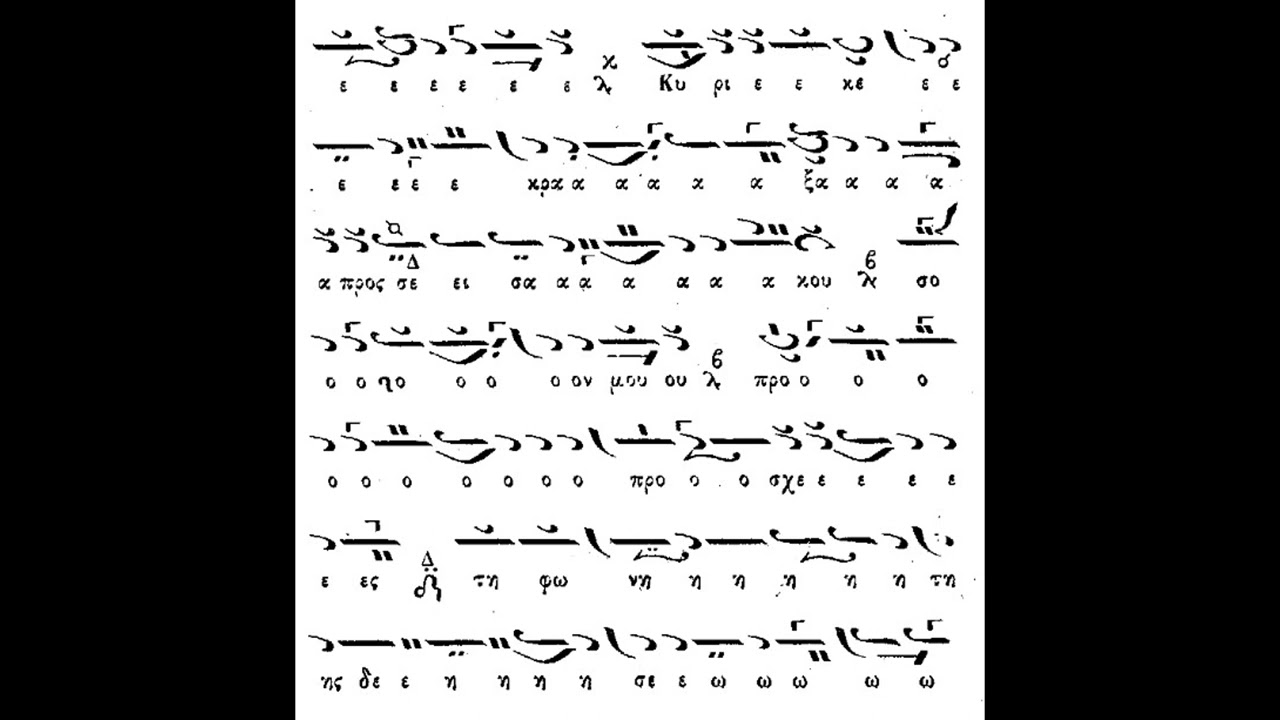 ε ε ε ε ε ε Κυ ρι ε ε κέ ε ε
ε ε ε ε κρα α α α α α ξα α α α
α προς σε ει σα α α α α α α κου σο
ο ο το ο ο ο ον μου ου προ ο ο ο
ο ο ο ο ο ο ο προ ο ο σχε ε ε ε ε
ε ες τη φω νη η η η η η τη
ης δε ε η η η η σε ε ω ω ω ω ω